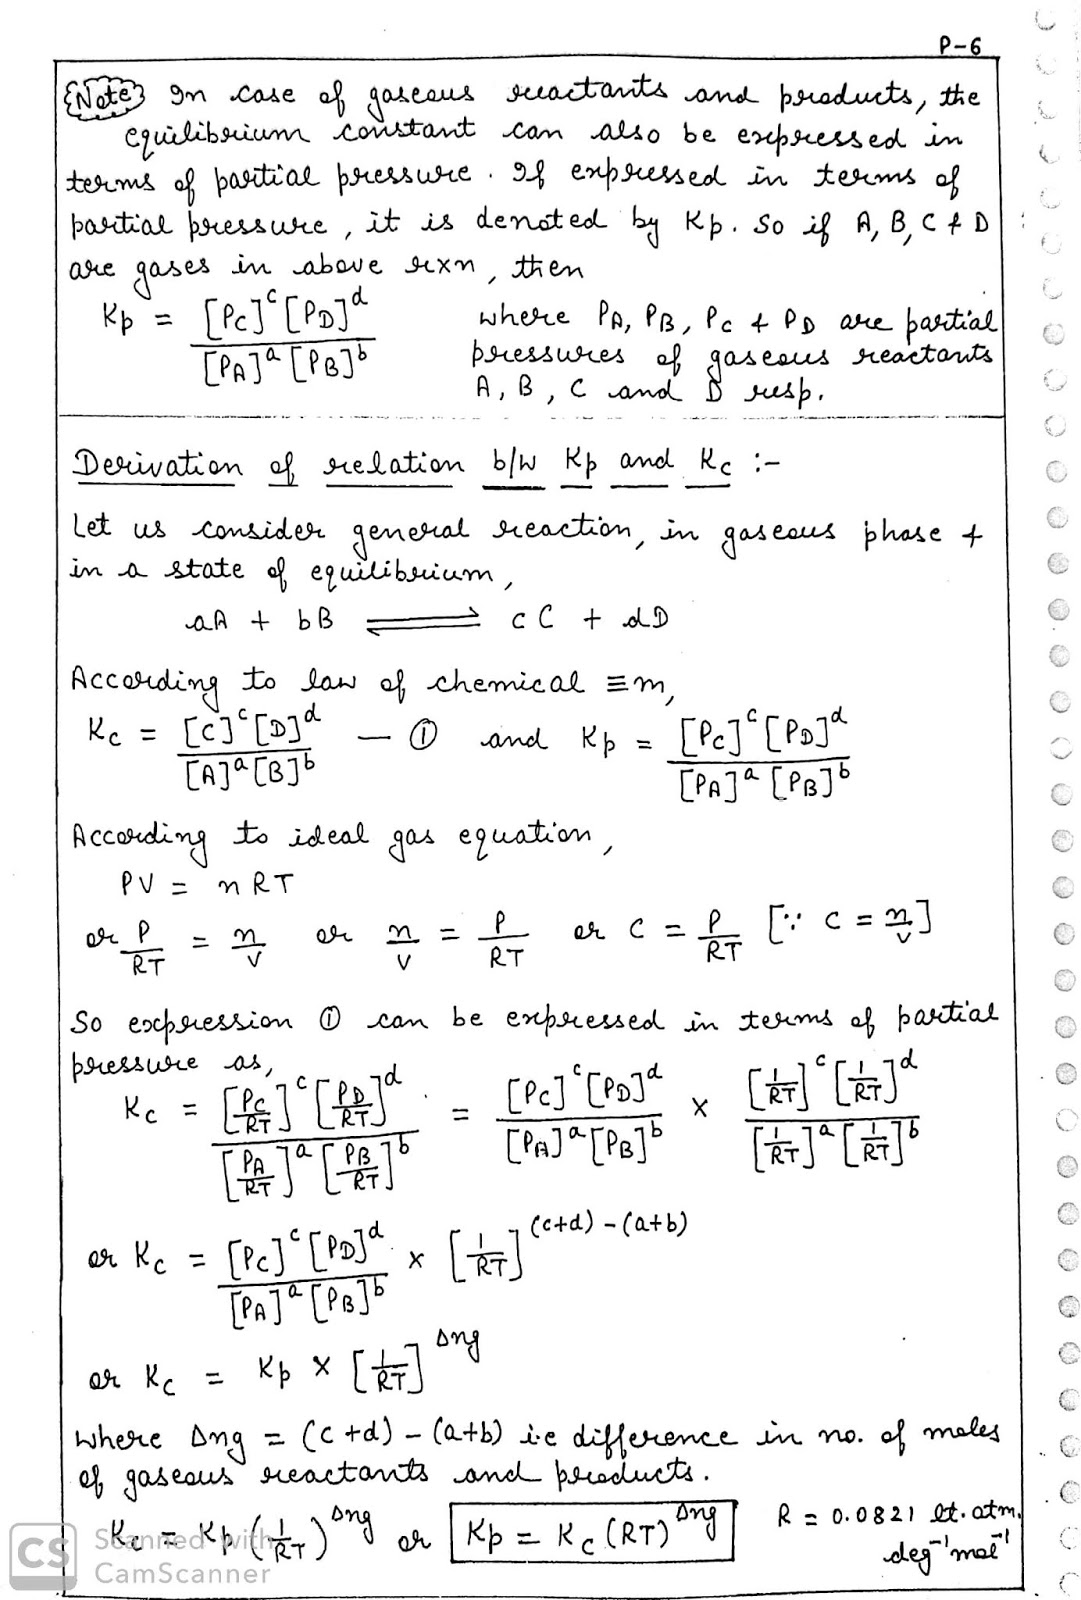 P-6
Note In case of gaseous reactants and products, the
equilibrium constant can also be expressed in
terms of partial pressure. If expressed in terms of
partial pressure, it is denoted by Kp. So if A, B, C & D
are gases in above rxn, then
Kp = [PC]^c [PD]^d / [PA]^a [PB]^b
where PA, PB, PC & PD are partial
pressures of gaseous reactants
A, B, C and D resp.
Derivation of relation b/w Kp and Kc :-
Let us consider general reaction, in gaseous phase &
in a state of equilibrium,
aA + bB ⇌ cC + dD
According to law of chemical ≡m,
Kc = [C]^c [D]^d / [A]^a [B]^b — ① and Kp = [PC]^c [PD]^d / [PA]^a [PB]^b
According to ideal gas equation,
PV = nRT
or P/RT = n/V or n/V = P/RT or C = P/RT [∵ C = n/V]
So expression ① can be expressed in terms of partial
pressure as,
Kc = [PC/RT]^c [PD/RT]^d / [PA/RT]^a [PB/RT]^b = [PC]^c [PD]^d / [PA]^a [PB]^b × [1/RT]^c [1/RT]^d / [1/RT]^a [1/RT]^b
or Kc = [PC]^c [PD]^d / [PA]^a [PB]^b × [1/RT]^(c+d)-(a+b)
or Kc = Kp × [1/RT]^Δng
where Δng = (c+d) - (a+b) i.e difference in no. of moles
of gaseous reactants and products.
Kc = Kp (1/RT)^Δng or Kp = Kc (RT)^Δng
R = 0.0821 lt. atm.
deg⁻¹ mol⁻¹
CS Scanned with
CamScanner